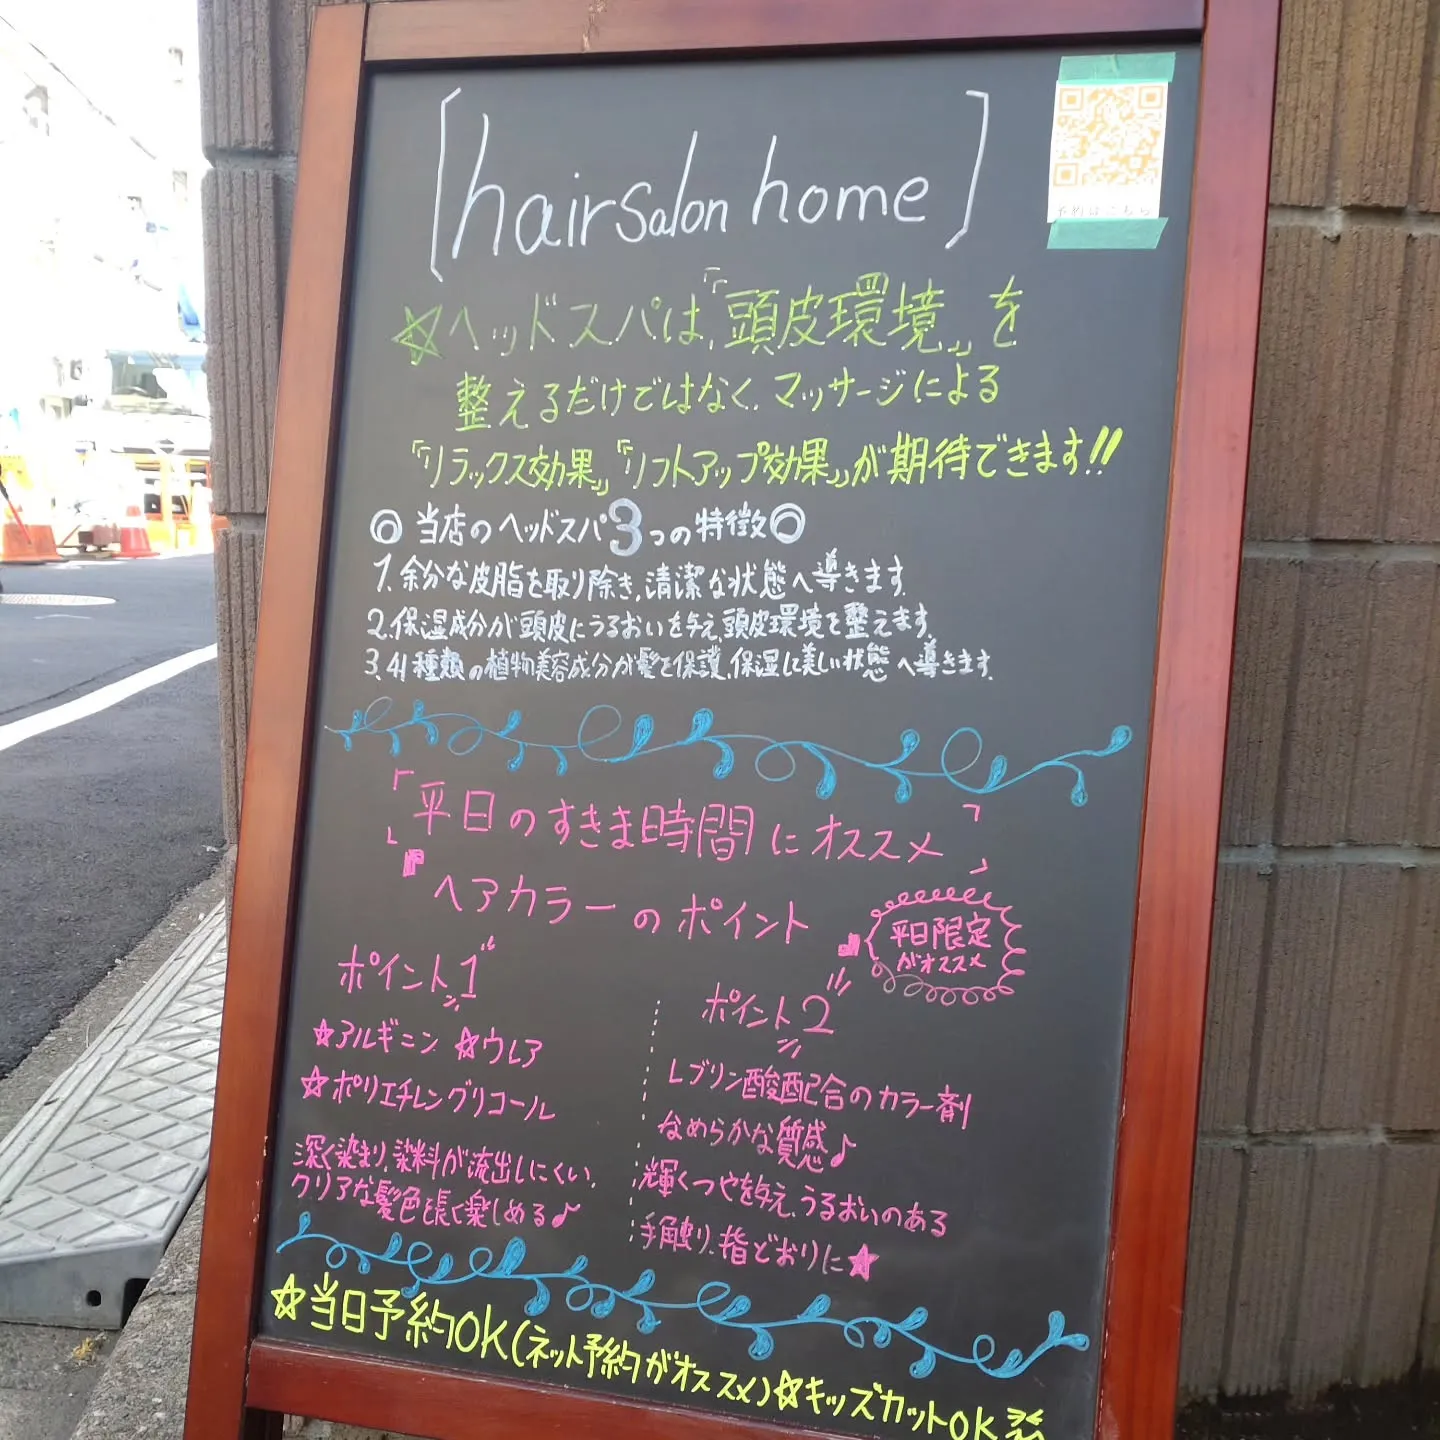 [hair salon home]
予約はこちら
☆ヘッドスパは、『頭皮環境』を
整えるだけではなく、マッサージによる
『リラックス効果』『リフトアップ効果』が期待できます!!
◎当店のヘッドスパ3つの特徴◎
1.余分な皮脂を取り除き、清潔な状態へ導きます。
2.保湿成分が頭皮にうるおいを与え、頭皮環境を整えます。
3.41種類の植物美容成分が髪を保護、保湿し美しい状態へ導きます。
「平日のすきま時間にオススメ」
『ヘアカラーのポイント』
平日限定
がオススメ
ポイント1
☆アルギニン ☆ウレア
☆ポリエチレングリコール
深く染まり、染料が流出しにくい、
クリアな髪色を長く楽しめる♪
ポイント2
レブリン酸配合のカラー剤
なめらかな質感♪
輝くつやを与え、うるおいのある
手触り、指どおりに★
☆当日予約OK(ネット予約がオススメ)☆キッズカットOK